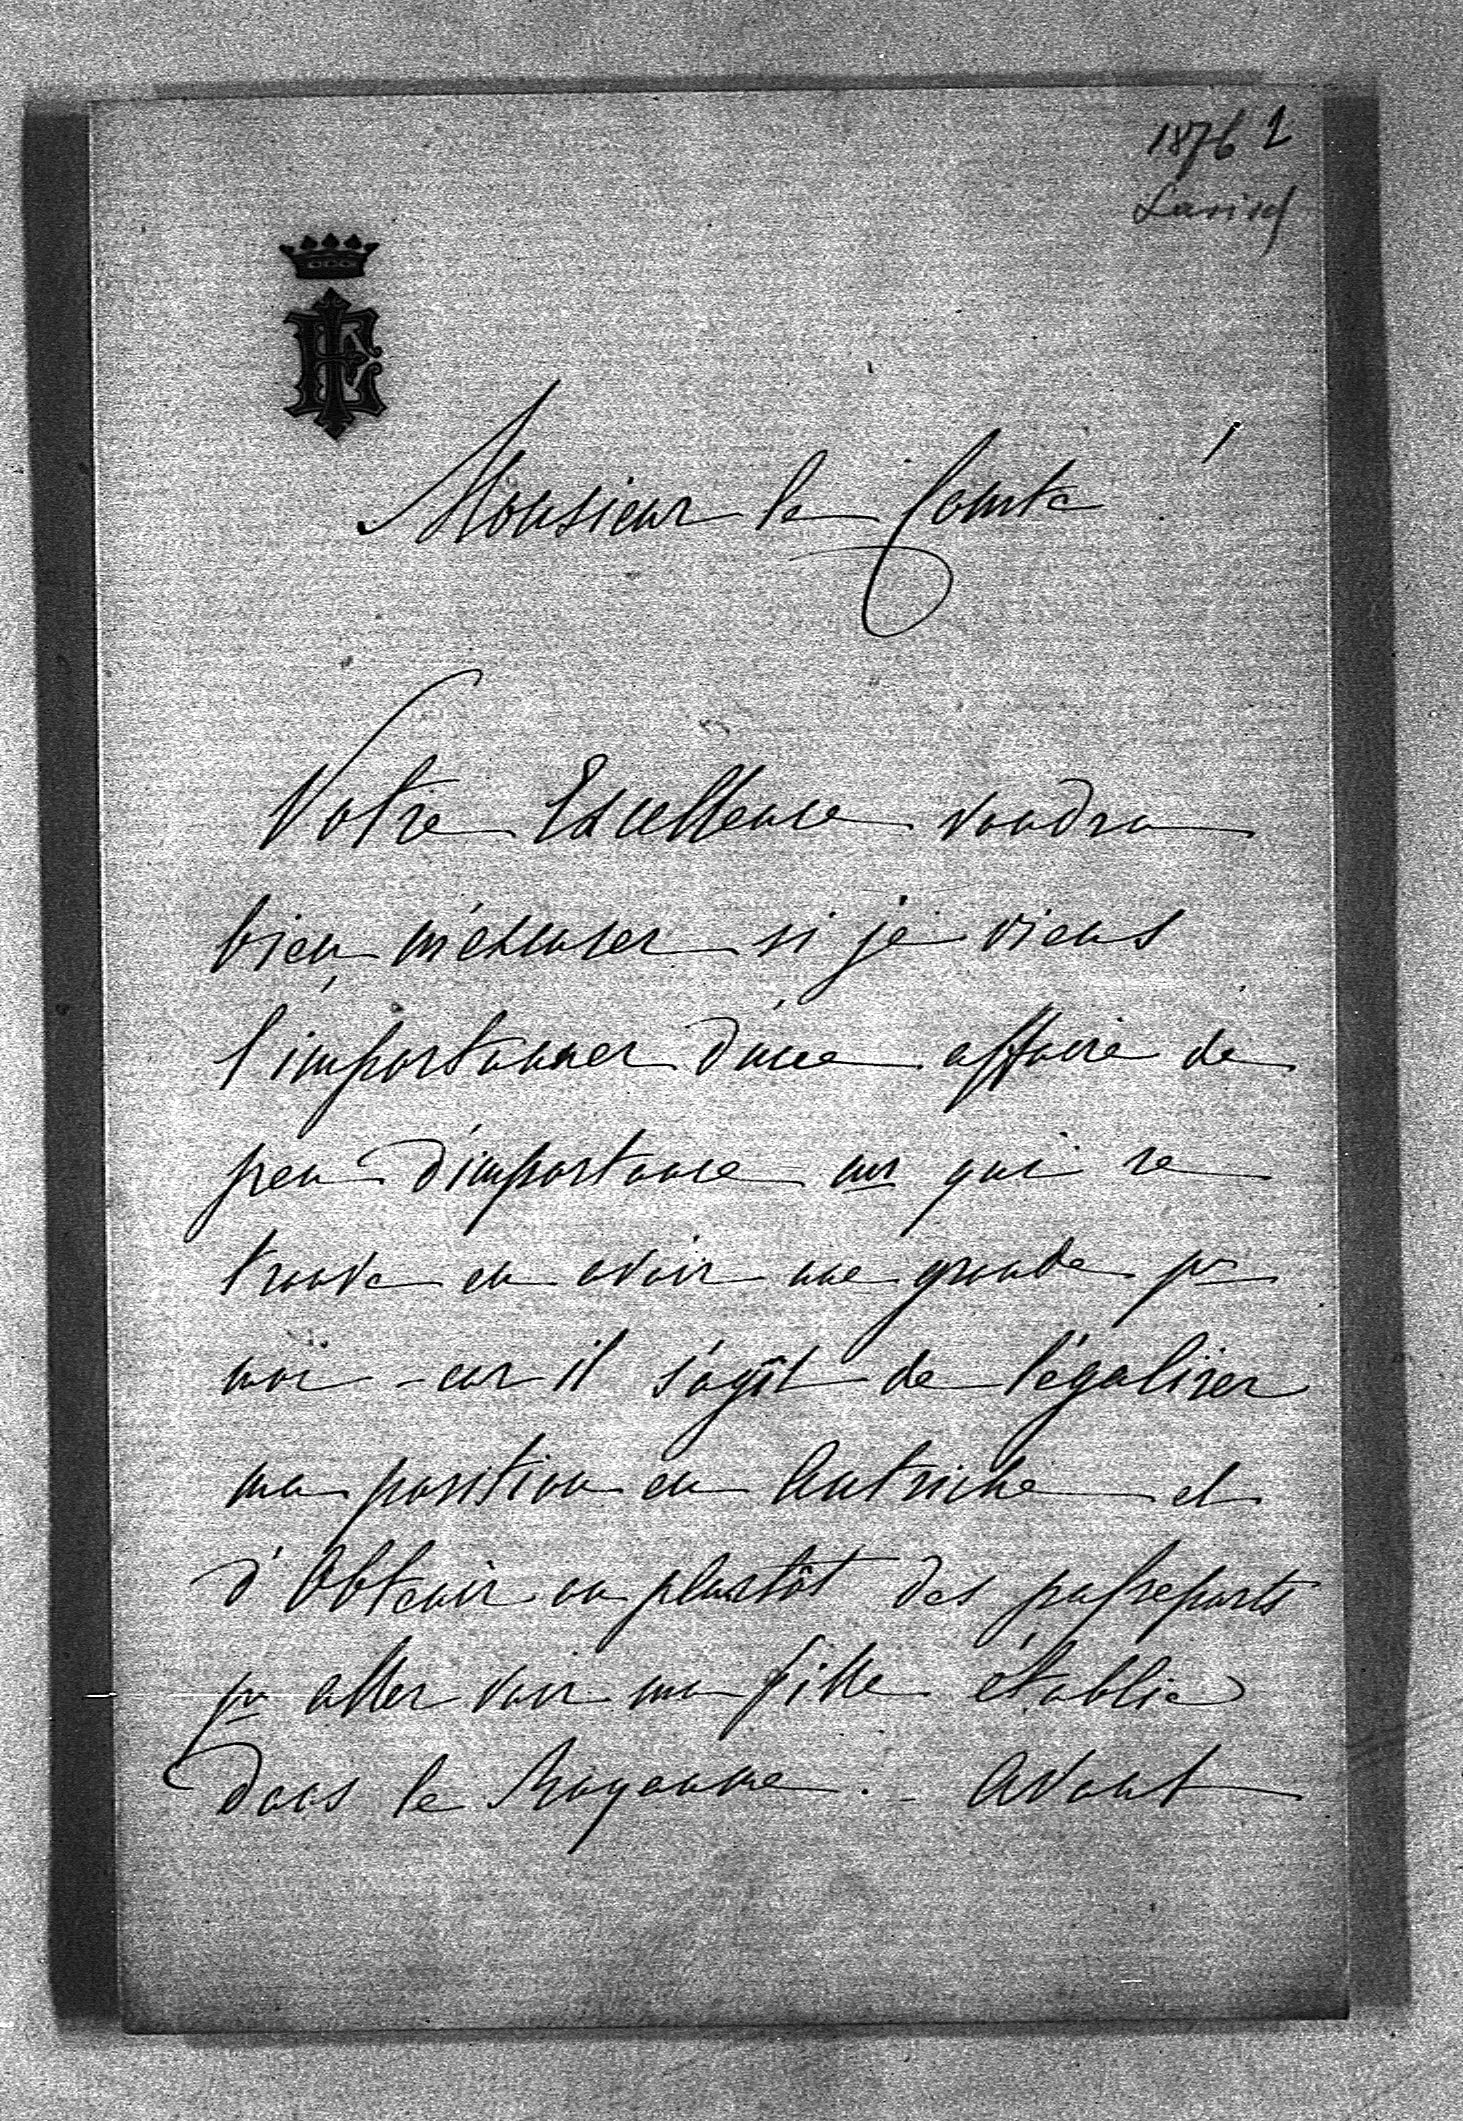 1876 1
Larisch
Monsieur le Comte !
Votre Excellence voudra
bien m'éxcuser si je viens
l'importunner d'une affaire de
peu d'importance ms qui se
trouve en avoir une grande pr
moi - car il s'agit de légaliser
ma position en Autriche et
d'Obtenir au plustôt des passeports
pr aller voir ma fille établie
dans le Royaume. - Avant